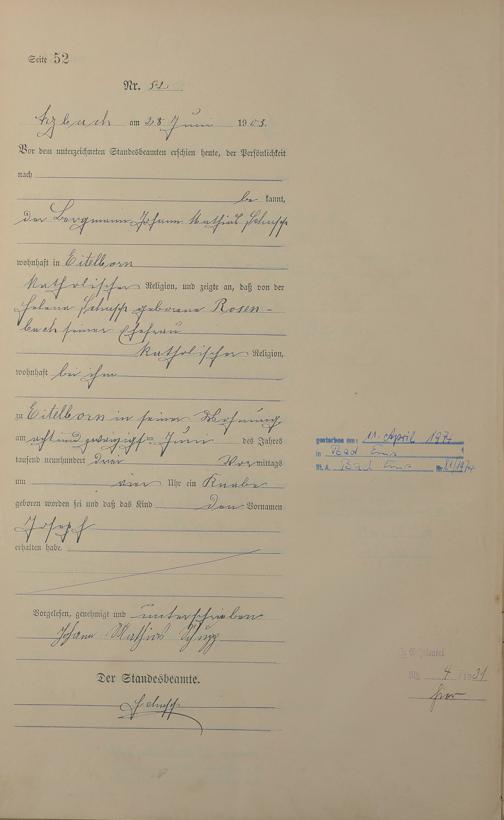 Seite 52
Nr. 52
Arzbach am 28 Juni 1903.
Vor dem unterzeichneten Standesbeamten erschien heute, der Persönlichkeit
nach
be kannt,
der Bergmann Johann Mathias Schupp
wohnhaft in Eitelborn
katholischer Religion, und zeigte an, daß von der
Helena Schupp geborene Rosen-
bach seiner Ehefrau
katholischer Religion,
wohnhaft bei ihm
zu Eitelborn in seiner Wohnung
am acht und zwanzigsten Juni des Jahres
tausend neunhundert drei Vor mittags
um vier Uhr ein Knabe
geboren worden sei und daß das Kind den Vornamen
Josef
erhalten habe.
Vorgelesen, genehmigt und unterschrieben
Johann Mathias Schupp
Der Standesbeamte.
gestorben am: 11. April 1974
in Bad Ems
St. A. Bad Ems Nr.
4 1931